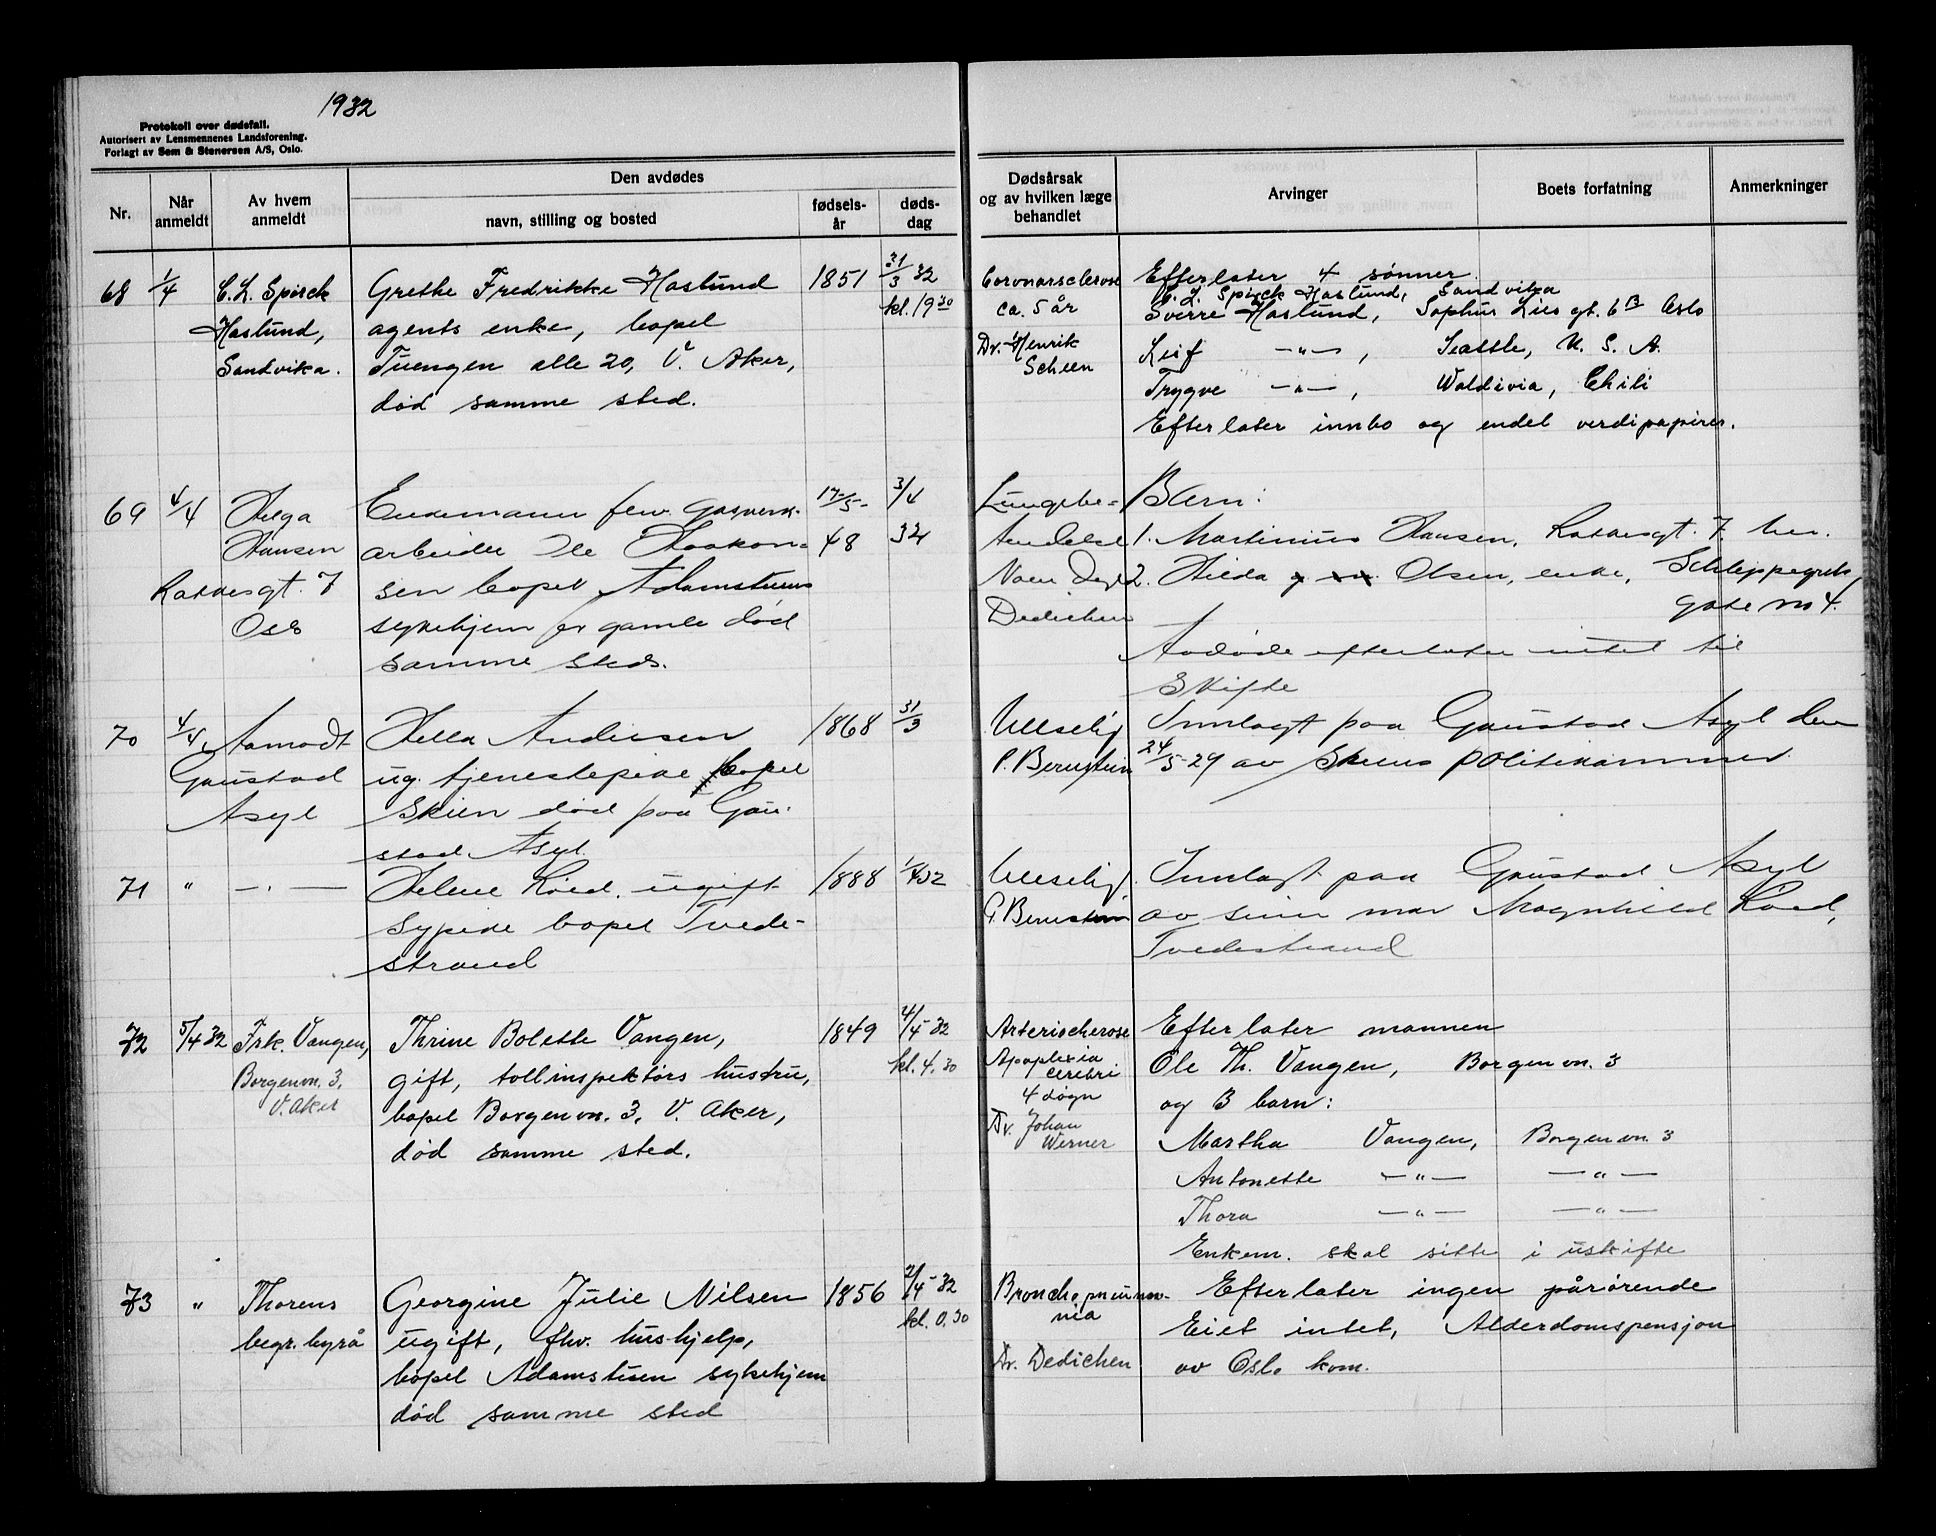 1932
Protokoll over dødsfall.
Autorisert av Lensmennenes Landsforening.
Forlagt av Sem & Stenersen A/S, Oslo.
Nr.
Når anmeldt
Av hvem anmeldt
Den avdødes
navn, stilling og bosted
fødsels-år
døds-dag
Dødsårsak og av hvilken læge behandlet
Arvinger
Boets forfatning
Anmerkninger
68 1/4 C.L. Spirck Haslund, Sandvika.
Grethe Fredrikke Haslund 1851 31/3 32
agents enke, bopel kl. 19 30
Tuengen alle 20, V. Aker,
død samme sted.
Coronarsclerose
ca. 5 år
Dr. Henrik
Scheen
Efterlater 4 sønner
C. L. Spirck Haslund, Sandvika
Sverre Haslund, Sophus Lies gt. 6B Oslo
Leif —"— , Seattle, U. S. A.
Trygve —"— , Waldivia, Chili
Efterlater innbo og endel verdipapirer.
69 4/4 Helga
Hansen
gt. 7
Oslo
Enkemann fhv. gasverk-
arbeider Ole Haakon-
sen bopel Adamstuens
sykehjem for gamle død
samme sted.
17/5- 48
3/4 32
Lungebe-
tendelse
Dedichen
Barn:
1. Martinius Hansen, gt. 7 her.
2. Hilda Olsen, enke, Schleppegrels
gate no 4.
Avdøde efterlater intet til
Skifte
70 4/4 Aamodt
Gaustad
Asyl
Hella Andersen 1868 31/3
ug. tjenestepike bopel
Skien død paa Gau-
stad Asyl.
Uleselig
P. Bernstein
Innlagt paa Gaustad Asyl den
24/5-29 av Skiens politikammer.
71 " —"—
Helene Röed. ugift 1888 1/4 32
sypike bopel Tvede-
strand
Uleselig
P. Bernstein
Innlagt paa Gaustad Asyl
av sin mor Magnhild Röed,
Tvedestrand
72 5/4 32 Frk. Vangen,
Borgenvn. 3,
V. Aker
Thrine Bolette Vangen, 1849 4/4-32
gift, tollinspektørs hustru, kl. 4.30
bopel Borgenvn. 3, V. Aker,
død samme sted.
Arterioscherose
Apoplexia
cerebri
4 døgn
Dr. Johan
Werner
Efterlater mannen
Ole Th. Vangen, Borgenvn. 3
og 3 barn:
Martha Vangen, Borgenvn. 3
Antonette —"— —"—
Thora —"— —"—
Enkem. skal sitte i uskifte
73 " Thorens
begr. byrå
Georgine Julie Nilsen 1856 2/4-32
ugift, fhv. hushjelp, kl. 0.30
bopel Adamstuen sykehjem
død samme sted
Bronchopneumo-
nia
Dr. Dedichen
Efterlater ingen pårørende
Eiet intet, Alderdomspensjon
av Oslo kom.